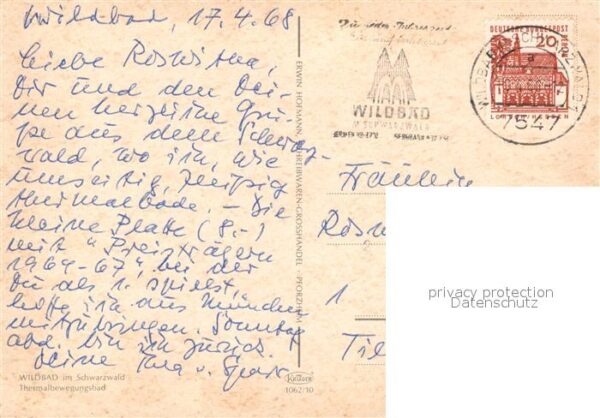 Wildbad, 17.4.68
Liebe Roswitha,
Dir und den Dei-
nen herzliche Grü-
ße aus dem Schwarz-
wald, wo ich, wie
umseitig, fleißig
thermalbade. – Die
kleine Platte (8.-)
mit "Preisträgern
1964-67", bei der
Du als 1. spielst,
hoffe ich aus München
mitzubringen. Sonntag
abd. bin ich zurück.
Deine
WILDBAD im Schwarzwald
Thermalbewegungsbad
ERWIN HOFMANN, SCHREIBWAREN-GROSSHANDEL · PFORZHEIM
1062/10
WILDBAD
IM SCHWARZWALD
DEUTSCHE BUNDESPOST
20
LORSCH/HESSEN
WILDBAD SCHWARZWALD
7547
Fräulein
Rosw
1
privacy protection
Datenschutz